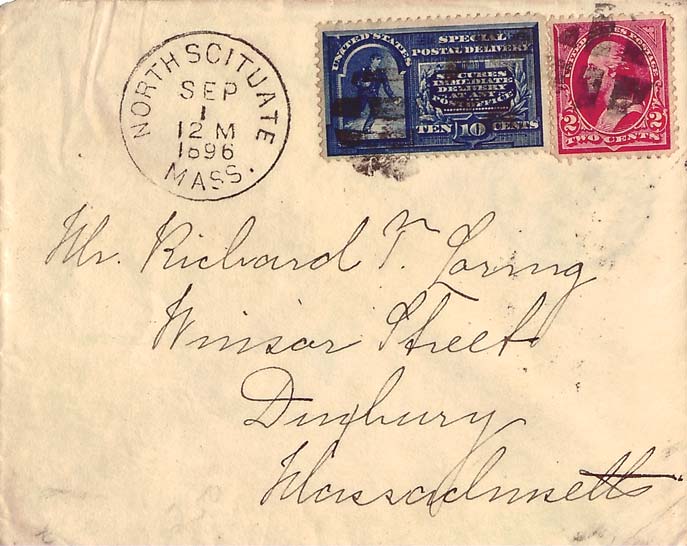 NORTH SCITUATE
SEP
1
12 M
1896
MASS.
UNITED STATES
SPECIAL
POSTAL DELIVERY
SECURES
IMMEDIATE
DELIVERY
AT ANY
POST OFFICE
TEN 10 CENTS
UNITED STATES POSTAGE
2 2
TWO CENTS
Mr. Richard T. Loring
Winsor Street
Duxbury
Massachusetts